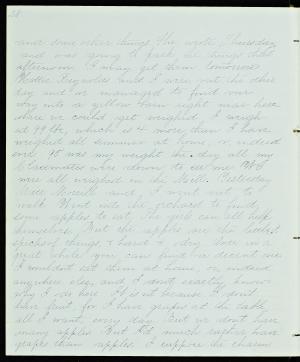 and some other things. She wrote Thursday
and was going to pack the things that
afternoon. I may get them tomorrow.
Nettie Reynolds and I were out the other
day and we managed to find our
way into a yellow barn right near here
where we could get weighed. I weigh
at 99 lbs, which is 4 more than I have
weighed all summer at home, or indeed
and. It was my weight the day all my
Classmates were down to see me. We
were all weighed in the . Yesterday
Morrill and I went out to
walk. Went into the orchard to find
some apples to eat. The girls can all help
themselves. But the apples are the
of things & hard & dry. Once in a
great while you can find a decent one.
I wouldn't eat them at home, or indeed
anywhere else, and I don't exactly know
why I do here. It is not because I don't
have fruit for I have grapes at the table
all I want, every day. But we don't have
many apples. But I'd much rather have
grapes than apples. I suppose the charm